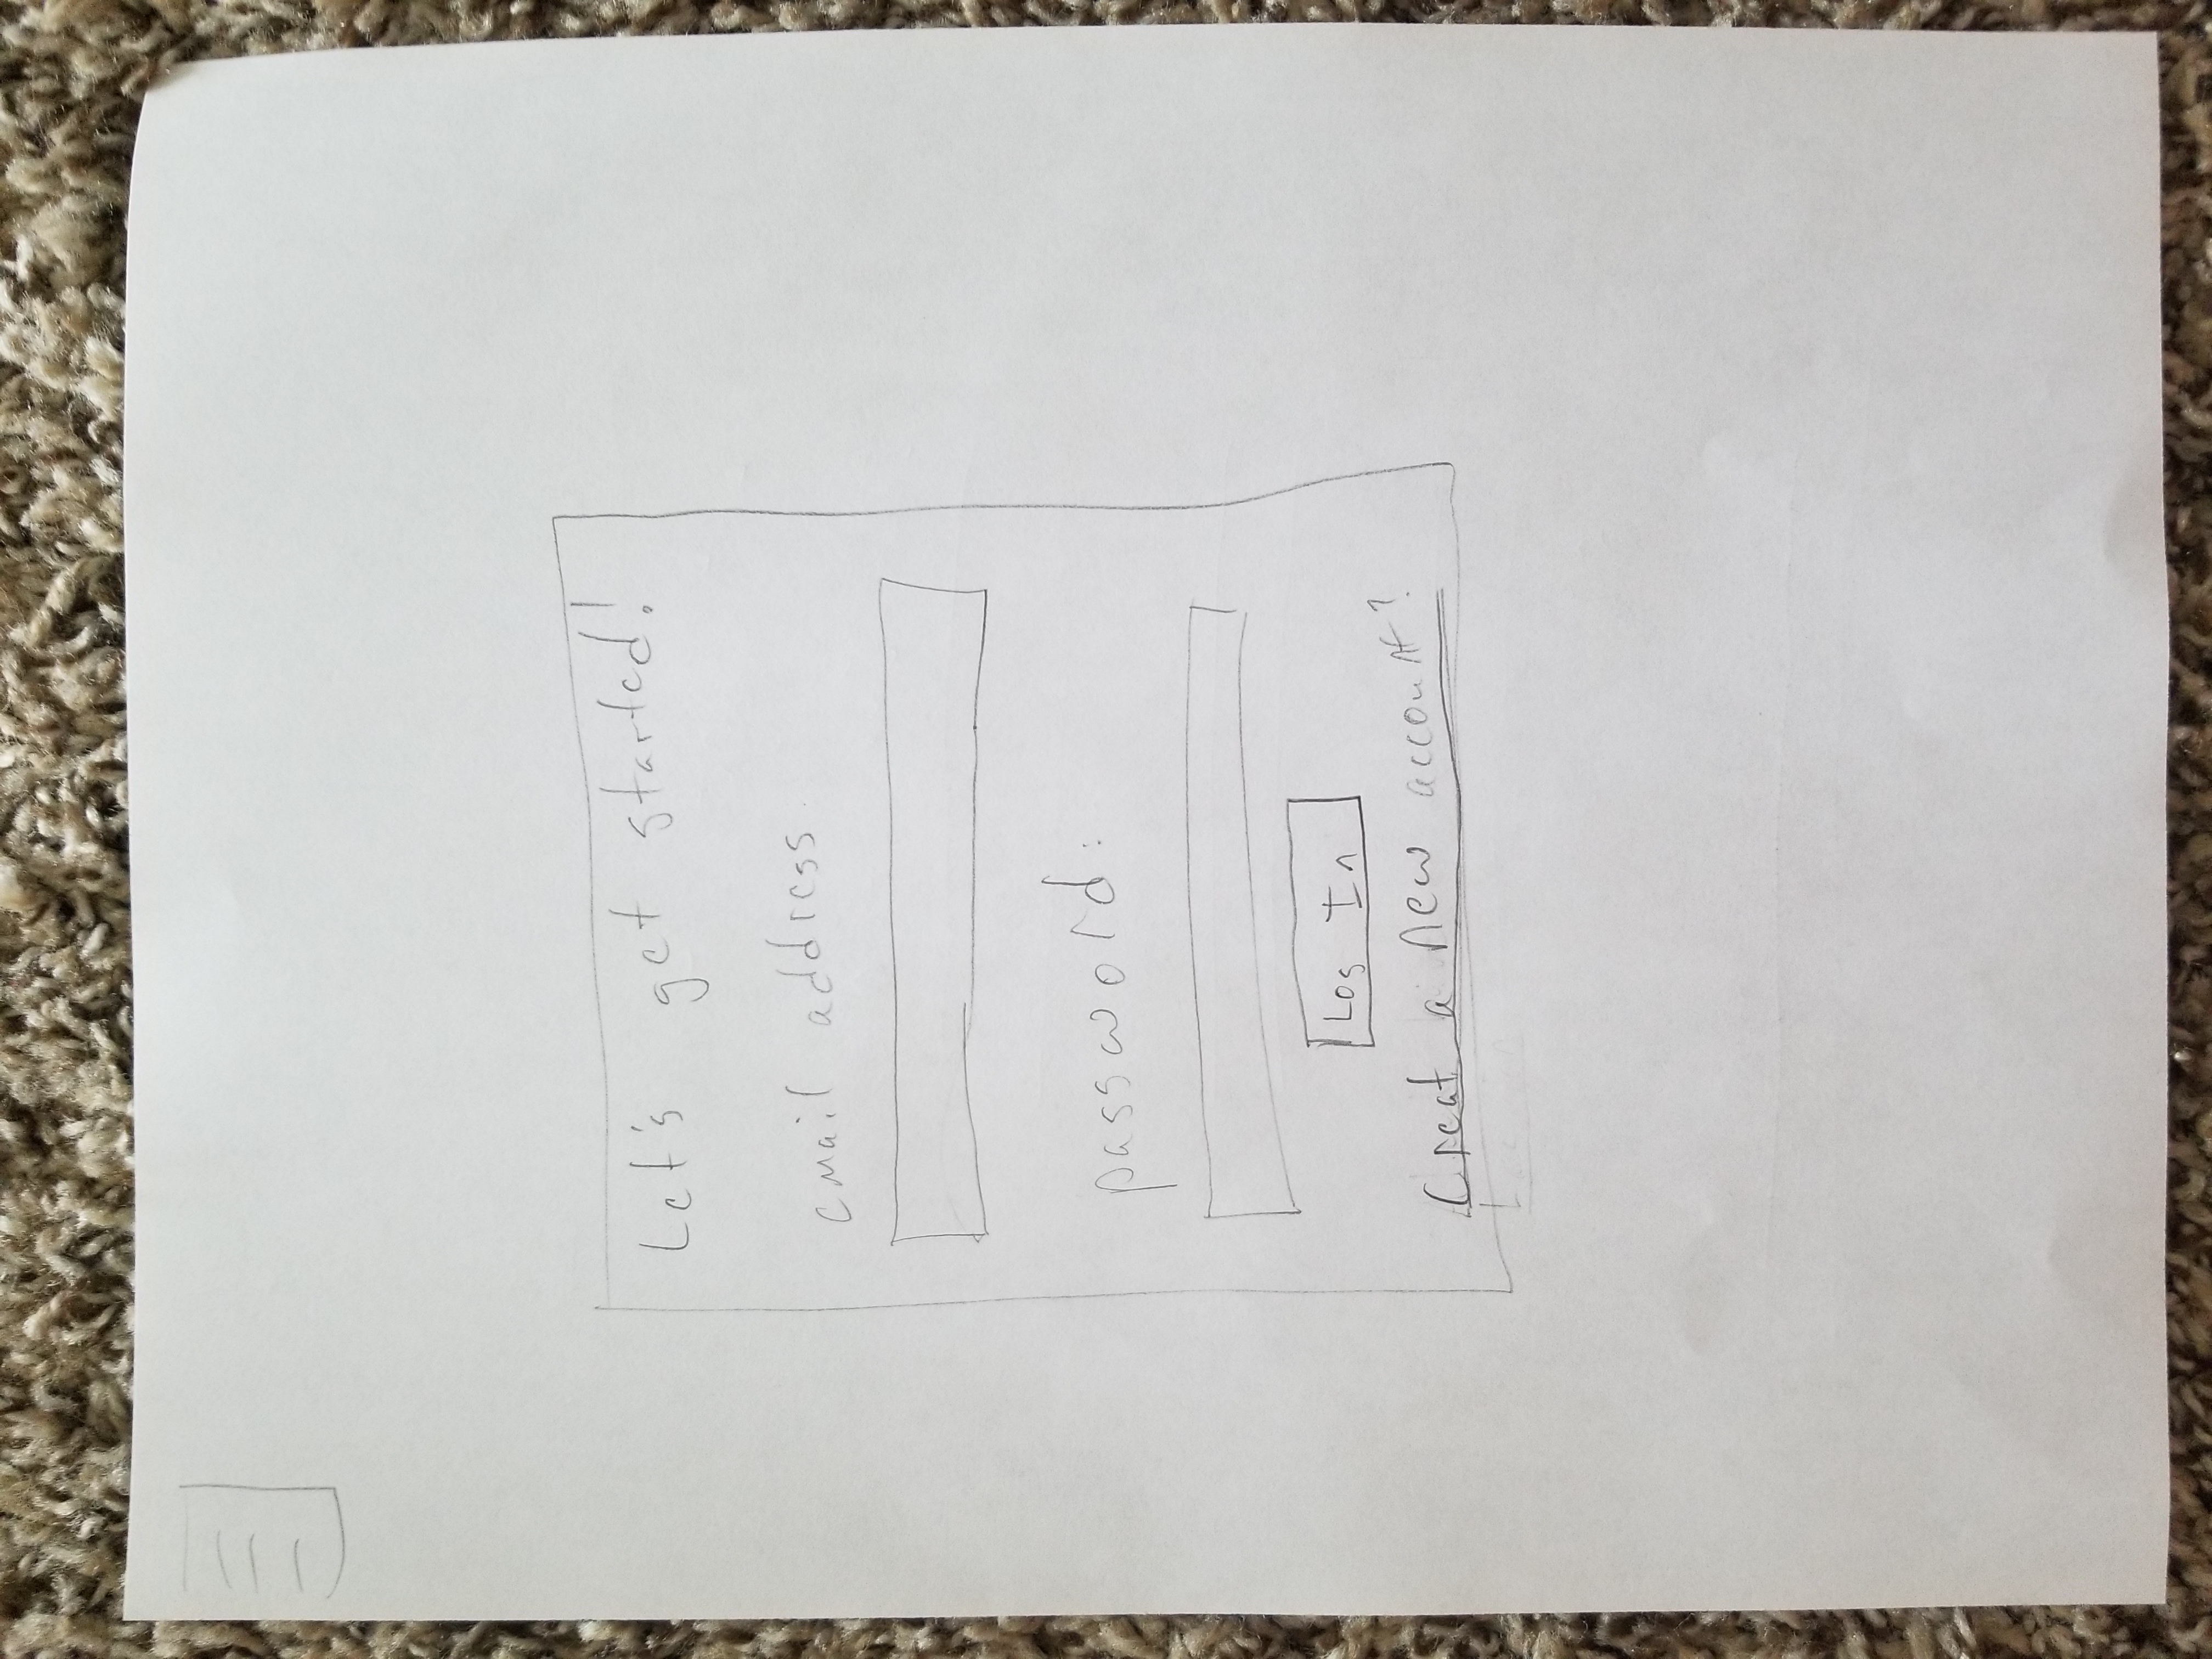 Let's get started!
email address
password:
Log In
Creat a new account?